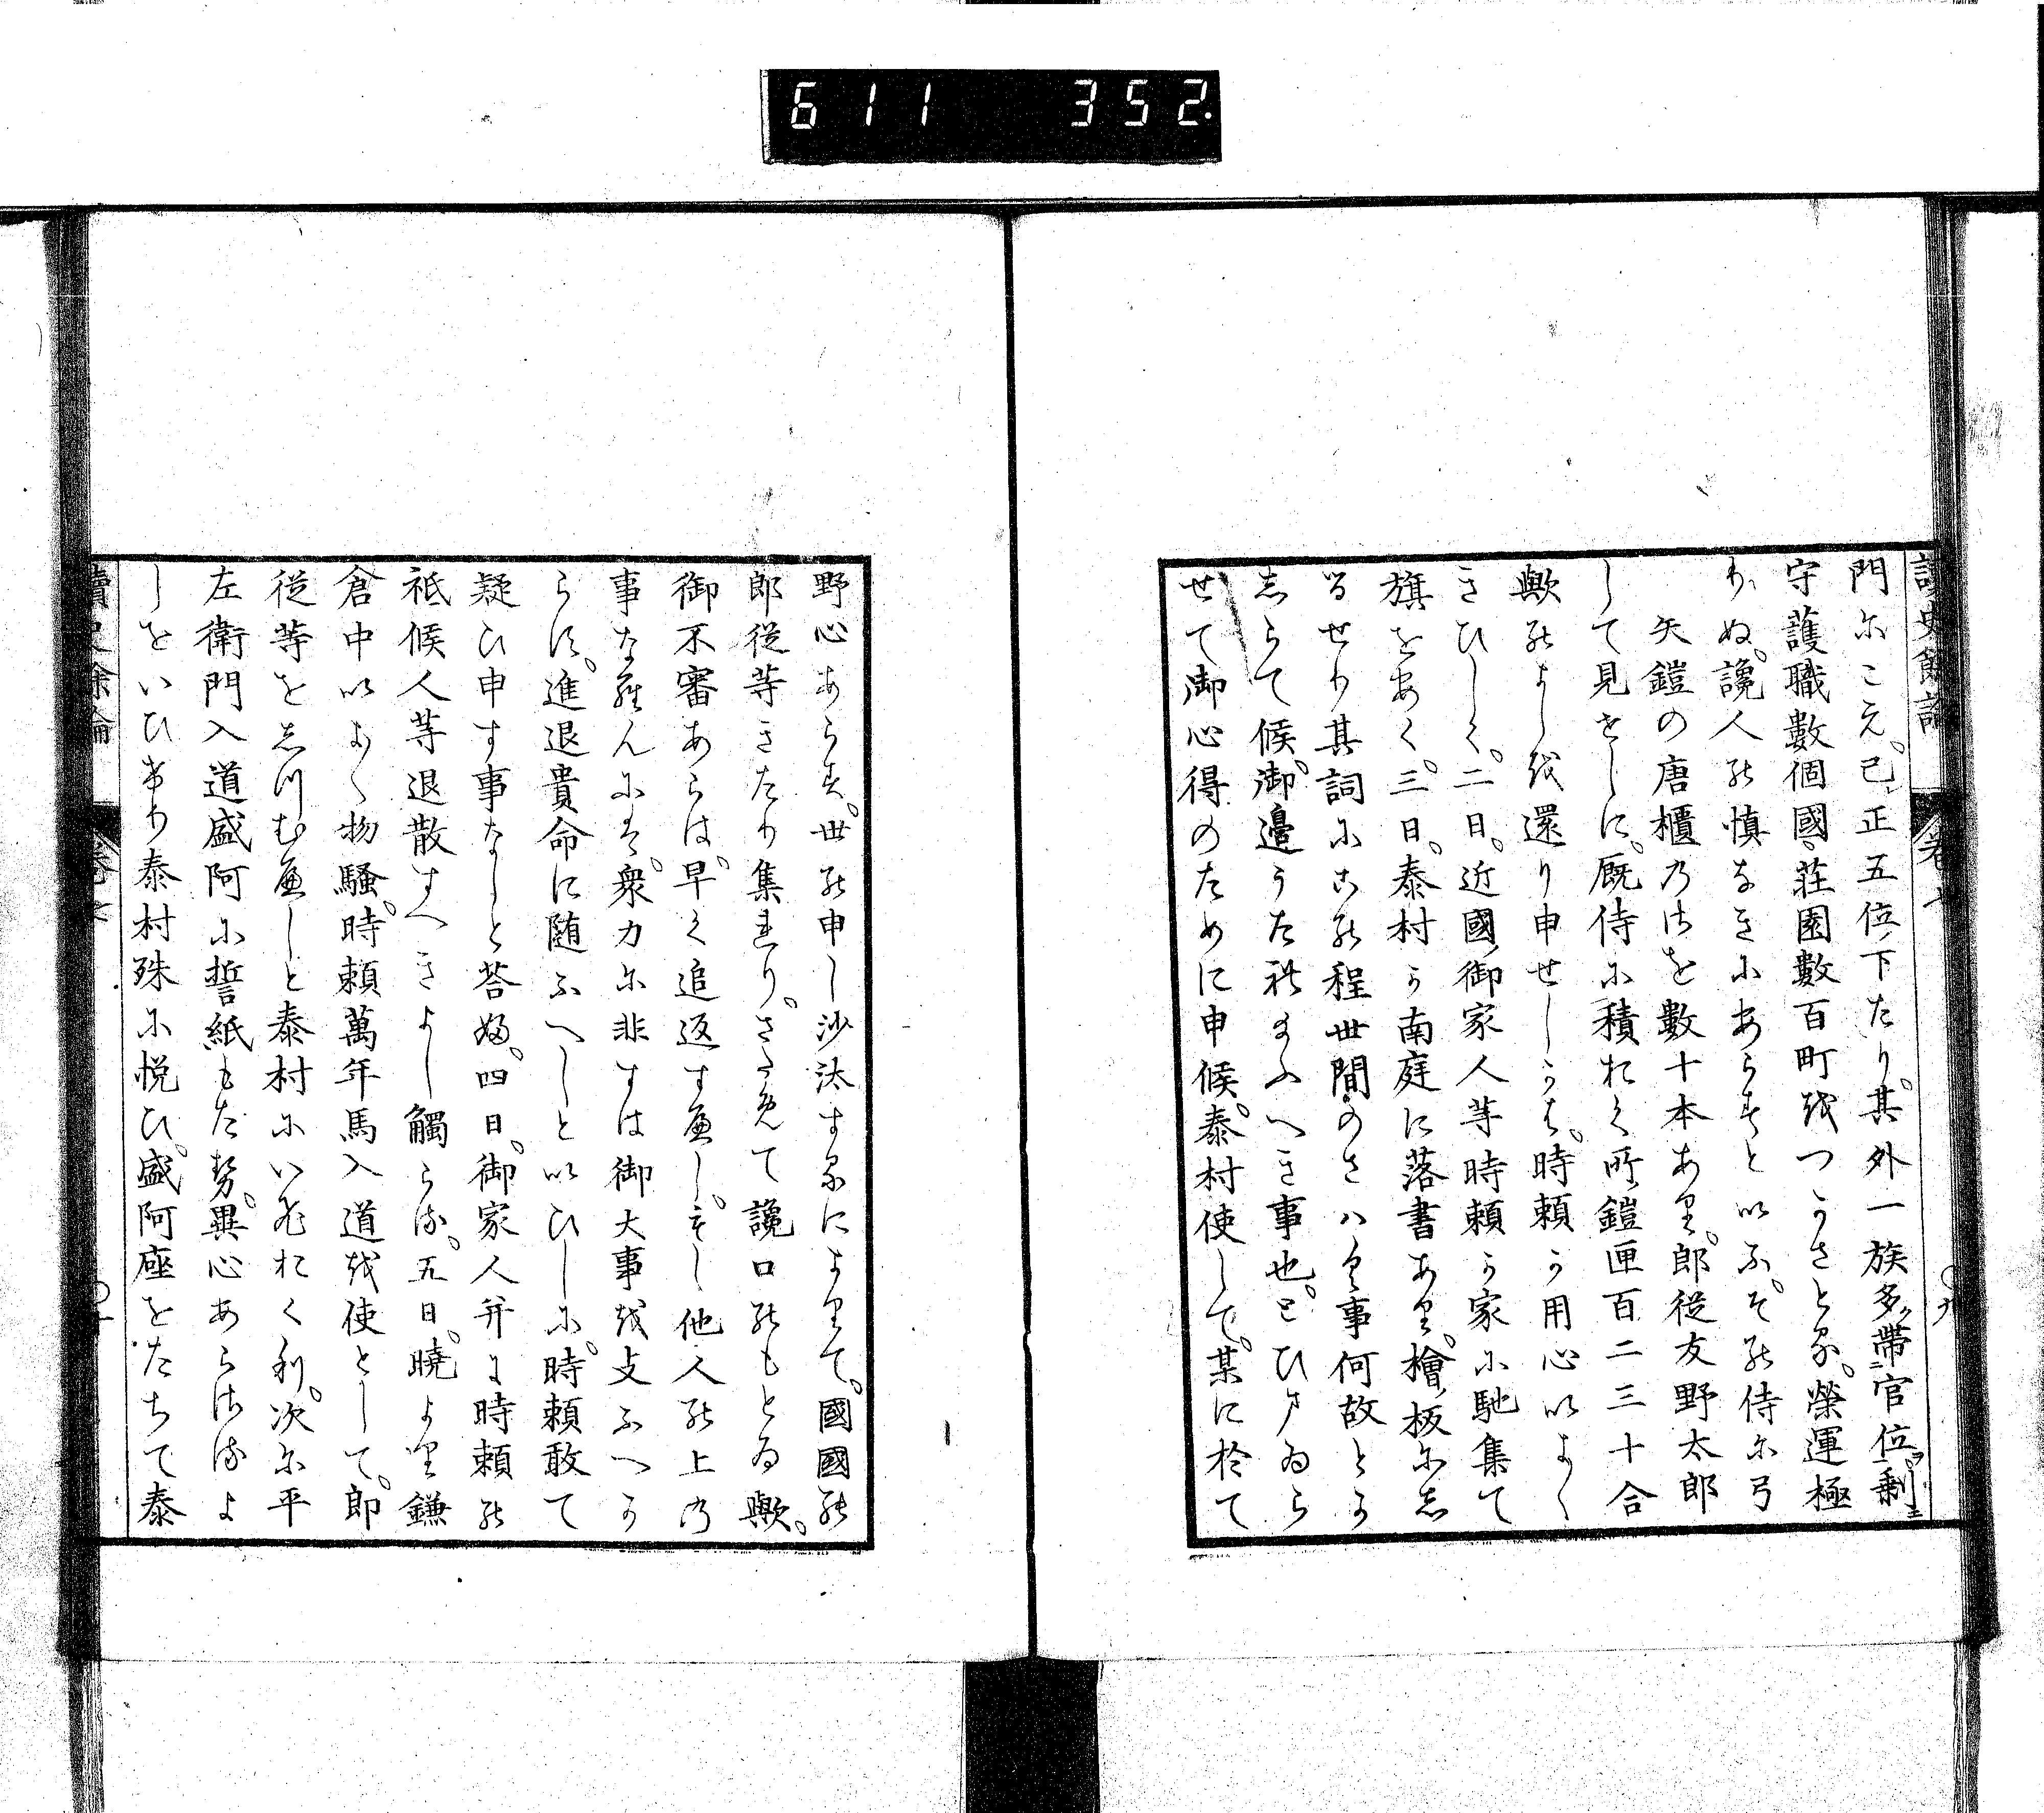 611 352.
讀史餘論 卷七 〇九
門にこえ。已ニ正五位ノ下たり。其外一族多ク帶ニ官位一。剰ヘ
守護職數個國。莊園數百町をつかさとる。榮運極
りぬ。讒人の慎なきにあらすと以ふ。その侍に弓
矢鎧の唐櫃乃はを數十本あり。郎従友野太郎
して見せしに。厩侍に積おく所。鎧匣百二三十合
歟のよしを還り申せしかは。時頼か用心いよ〱
きひしく。二日。近國ノ御家人等時頼か家に馳集て
旗をあく。三日。泰村か南庭に落書あり。檜ノ板にし
るせり其詞にこの程世間のさハく事何故とか
しらて候。御邊うたれ給ふへき事也。とひまゐら
せて御心得のために申候。泰村使して。某に於て
野心あらす。世の申し沙汰するによりて。國國の
郎従等きたり集まれり。さためて讒口のもとゐ歟。
御不審あらは。早く追返すへし。もし他人の上の
事ならんには。衆力に非すは御大事を支ふへか
らす。進退貴命に随ふへしと以ひしに。時頼敢て
疑ひ申す事なしと荅ふ。四日。御家人并に時頼の
祗候人等退散すへきよし觸らる。五日。曉より鎌
倉中いよ〱物騒。時頼萬年馬入道を使として。郎
従等をしつむへしと泰村にいはれく利。次に平
左衛門入道盛阿に誓紙もたせ。異心あらさるよ
しをいひけり泰村殊に悦ひ。盛阿座をたちて泰
讀史餘論 卷七 〇十